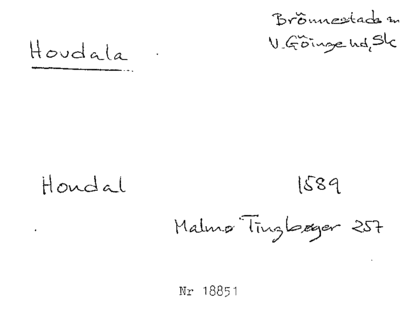 Brönnestads sn
V. Göinge hd, Sk
Hovdala
Houdal 1589
Malmø Tingbøger 257
Nr 18851